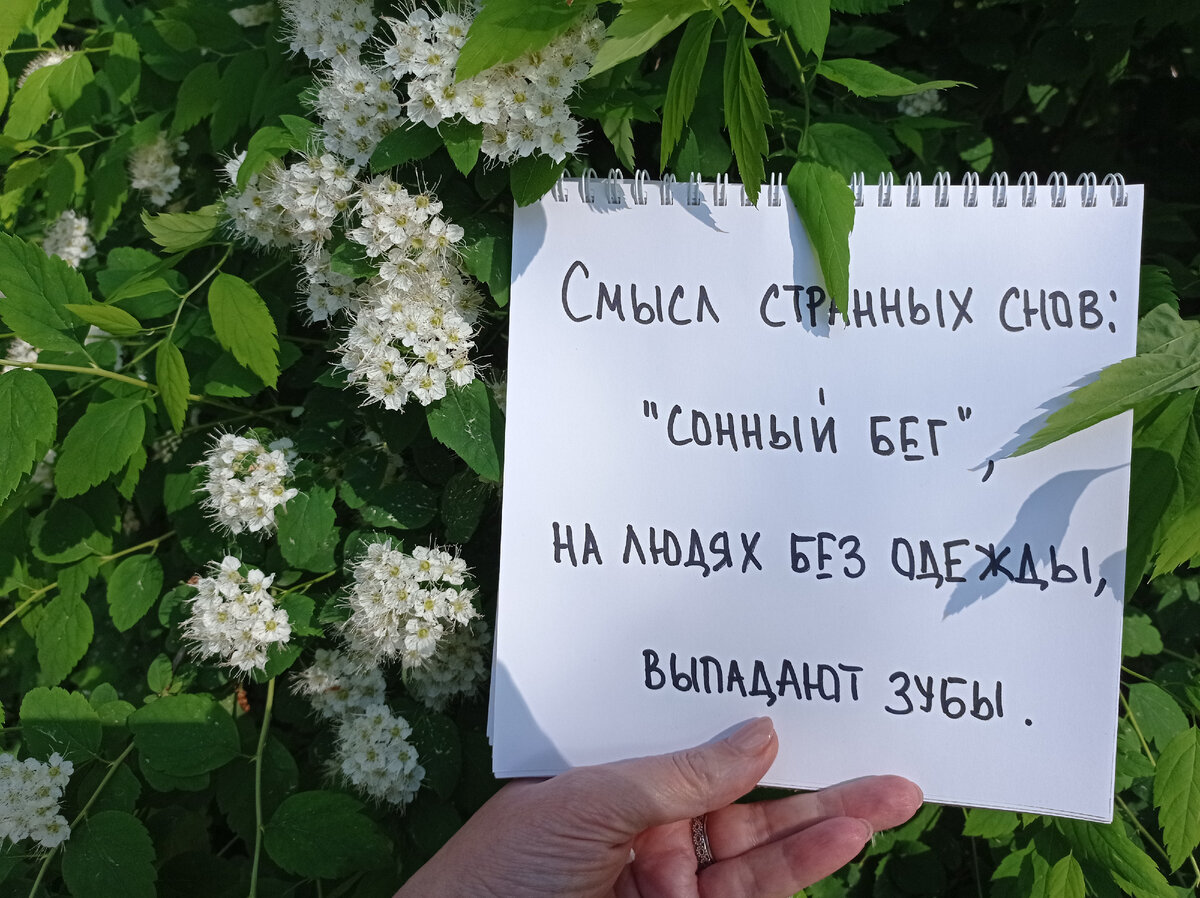 Смысл странных снов:
"сонный бег",
на людях без одежды,
выпадают зубы.